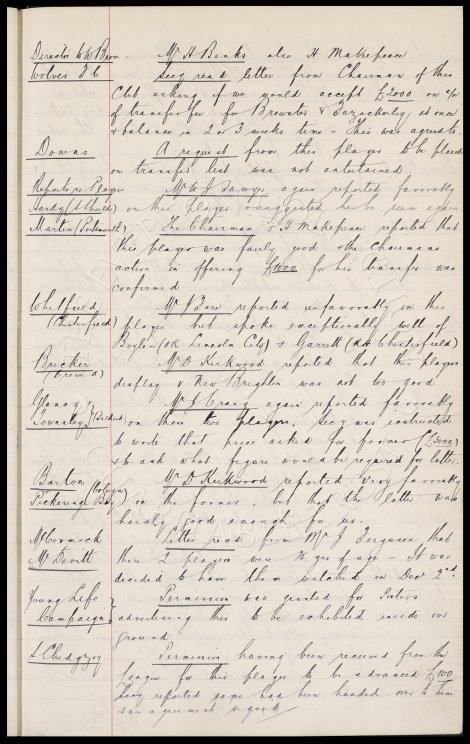 Director to W Brom. Mr H Banks also H Makepeace
Wolves F C Secy read letter from Chairman of this
Club asking if we would accept £2000 on a/c
of transfer fee for Brewster & at once
& balance in 2 or 3 weeks time - This was agreed to.
Downs A request from this player to be placed
on transfer list was not entertained
Reports re Player Mr W J Sawyer again reported favorably
Hardy (S Shields) on this player & suggested he be seen again
Martin (Portsmouth) The Chairman & H Makepeace reported that
this player was fairly good & the Chairmans
action in offering £1000 for his transfer was
confirmed
Whitfield Mr J Fare reported unfavorably on this
(Chesterfield) player but spoke exceptionally well of
(OR Lincoln City) & Garrett (RH Chesterfield)
Mr D Kirkwood reported that this players
(Crewe A) display v New Brighton was not too good
Glancy Mr J Craig again reported favorably
Townsley on these two players. Secy was instructed
to write that price asked for former (£3000)
& to ask what figure would be required for latter.
Barton (Colwyn Mr D Kirkwood reported very favorably
Pickering Bay) on the former, but that the latter was
hardly good enough for us.
McCormick Letter read from Mr J Ferguson that
Mc Devitt these 2 players were 16 yrs of age - It was
decided to have them watched on Decr 2nd.
Young Life Permission was granted for Posters
Campaign advertising this to be exhibited inside our
ground
A Chedgzoy Permission having been received from the
League for this player to be advanced £100.
Secy reported same had been handed over to him
& an agreement signed